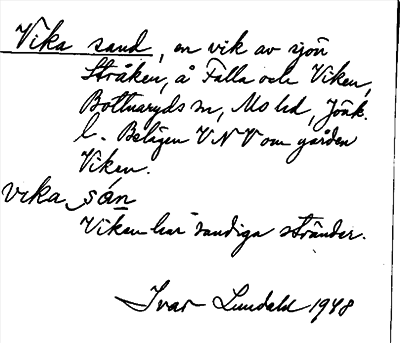 Vika sand, en vik av sjön
Stråken, å Falla och Viken,
Bottnaryds sn, Mo hd, Jönk.
l. Belägen VNV om gården
Viken.
vika sán
Viken har sandiga stränder.
Ivar Lundahl 1948